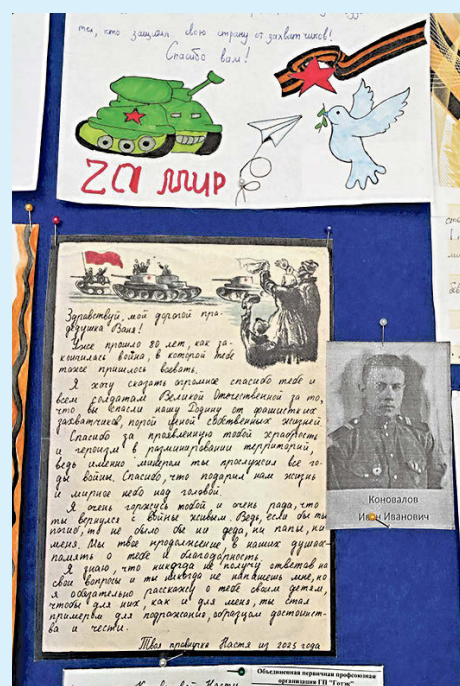 тех, кто защищал свою страну от захватчиков!
Спасибо вам!
Zа мир
Здравствуй, мой дорогой пра-
дедушка Ваня!
Уже прошло 80 лет, как за-
кончилась война, в которой тебе
тоже пришлось воевать.
Я хочу сказать огромное спасибо тебе и
всем солдатам Великой Отечественной за то,
что вы спасли нашу Родину от фашистких
захватчиков, порой ценой собственных жизней.
Спасибо за проявленную тобой храбрость
и героизм в разминировании территорий,
ведь именно минером ты прослужил все го-
ды войны. Спасибо, что подарил нам жизнь
и мирное небо над головой.
Я очень горжусь тобой и очень рада, что
ты вернулся с войны живым. Ведь, если бы ты
погиб, то не было бы ни деда, ни папы, ни
меня. Мы твое продолжение, в наших душах-
память о тебе и благодарность.
Я знаю, что никогда не получу ответов на
свои вопросы и ты никогда не напишешь мне, но
я обязательно расскажу о тебе своим детям,
чтобы для них, как и для меня, ты стал
примером для подражания, образцом достоинст-
ва и чести.
Твоя правнучка Настя из 2025 года
Коновалов
Иван Иванович
Объединенная первичная профсоюзная
организация ГП "Готэк"
Настя